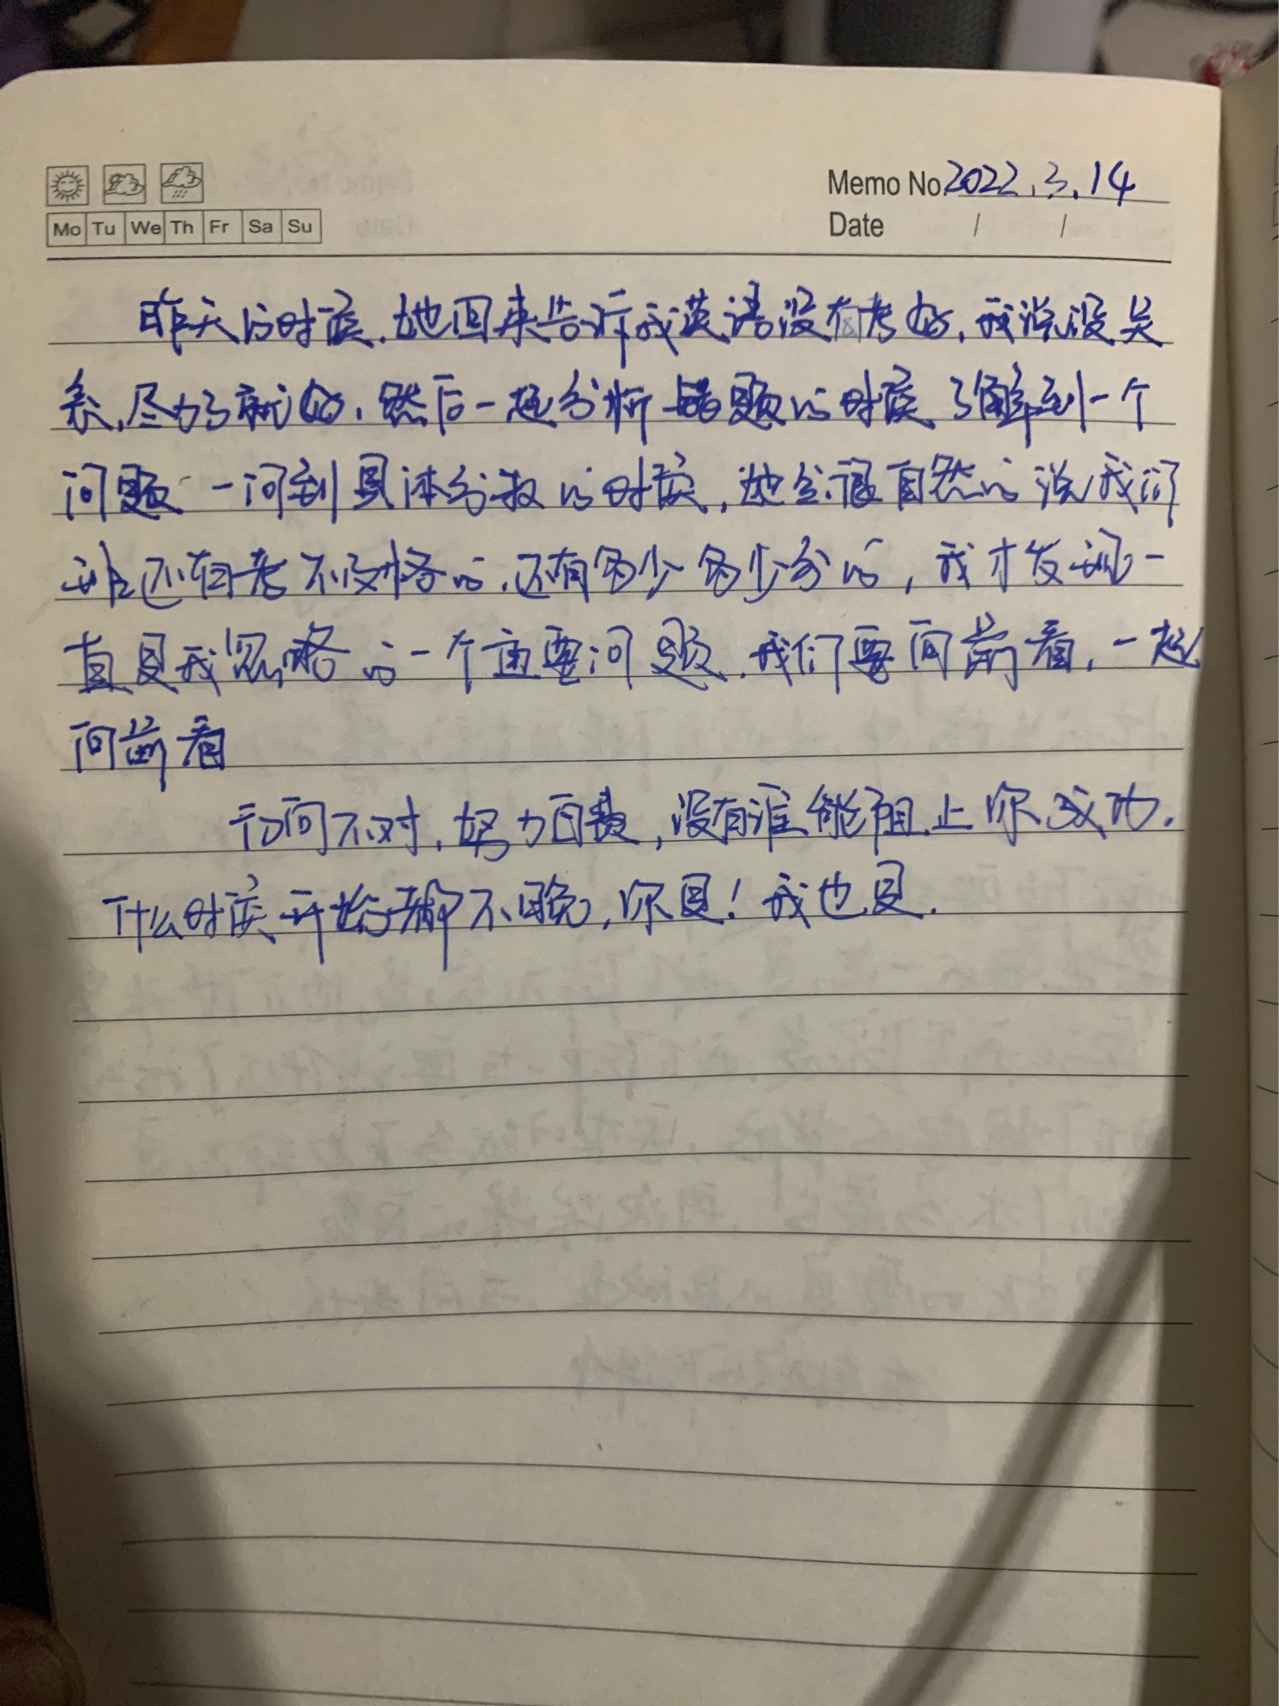 Memo No 2022.3.14
Mo Tu We Th Fr Sa Su
Date / /
昨天的时候,她回来告诉我英语没有考好,我说没关
系,尽力了就好,然后一起分析错题的时候了解到一个
问题 一问到具体分数的时候,她会很自然的说我们
班还有考不及格的,还有多少多少分的,我才发现一
直是我忽略的一个重要问题,我们要向前看,一起
向前看
方向不对,努力白费,没有谁能阻止你成功.
什么时候开始都不晚,你是!我也是.